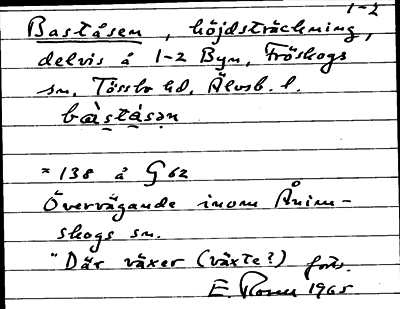 1-2
Baståsen, höjdsträckning,
delvis å 1-2 Byn, Fröskogs
sn, Tössbo hd, Älvsb. l.
bàstásən
= 138 å G 62
Övervägande inom Ånim-
skogs sn.
"Där växer (växte?) forts.
E. Rosell 1965